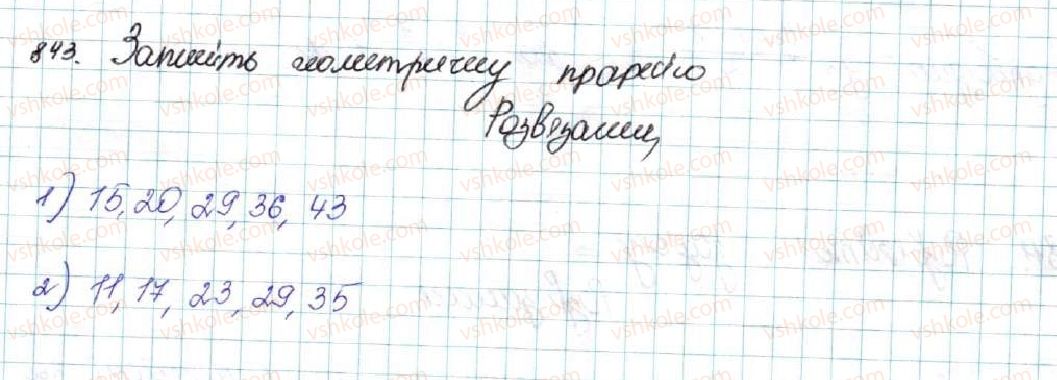 843. Запишіть геометричну прогресію
Розв'язання
1) 15, 20, 29, 36, 43
2) 11, 17, 23, 29, 35
vshkole.com